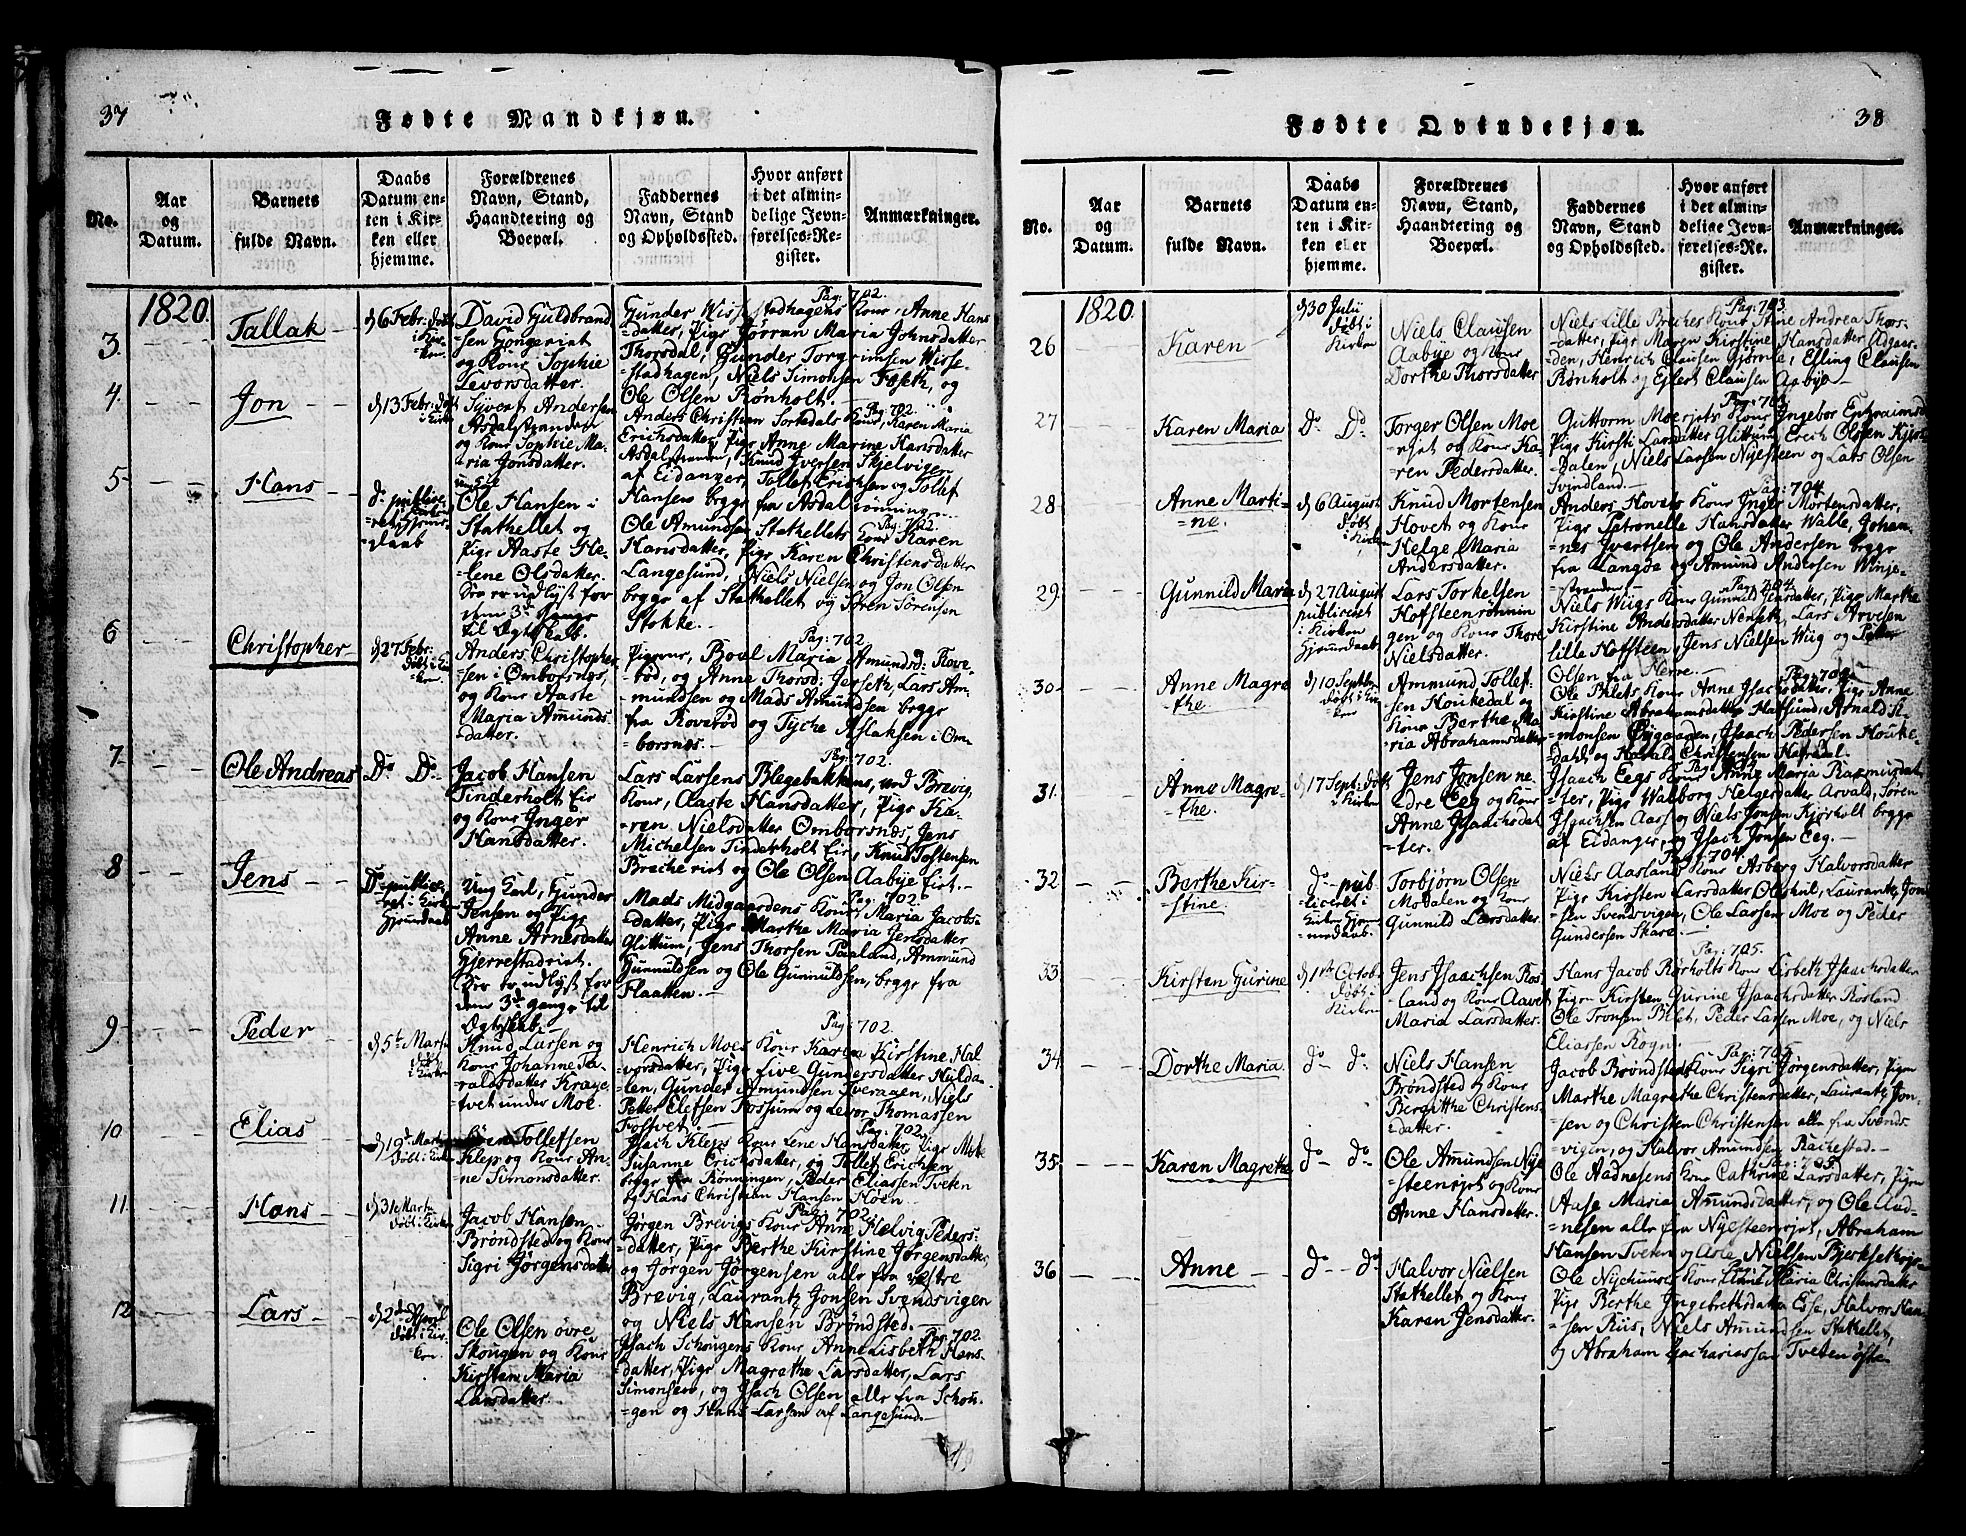 37
Fødte Mandkjøn.
No.
Aar og Datum.
Barnets fulde Navn.
Daabs Datum enten i Kirken eller hjemme.
Forældrenes Navn, Stand, Haandtering og Boepæl.
Faddernes Navn, Stand og Opholdssted.
Hvor anført i det almindelige Jevnførelses-Register.
Anmærkninger.
1820.
3.
Tallak
d 6 Febr: døbt i Kirken.
David Guldbrand
=sen Gongeriet
og Kone Sophie
Levorsdatter.
Pag: 702.
Gunder Wisstadhagens Kone Anne Hans
=datter, Pige Jørran Maria Johnsdatter
Thorsdal, Gunder Torgrimsen Wisse-
=stadhagen, Niels Simonsen Foseth, og
Ole Olsen Rønholt.
4.
Jon
d 13 Febr: døbt i Kirk.
Syvert Andersen
Asdalstranden
og Kone Sophie Ma-
ria Jonsdatter.
Pag: 702.
Anders Christian Sortedals Kone, Karen Maria
Erichsdatter, Pige Anne Marine Hansdatter
Asdalstranden, Knud Iversen Skjelvigen
af Eidanger, Tollef Erichsen og Tollef
Hansen begge fra Asdal
5.
Hans
d. publice-
ret Hjemme-
-daab
Ole Hansen i
Stathellet og
Pige Aaste He-
lene Olsdatter.
Pag: 702.
Ole Amundsen Stathellets Kone Karen
Hansdatter, Pige Karen Christensdatter
Langesund, Niels Nielsen og Jon Olsen
begge af Stathellet og Søren Sørensen
Stokke.
til Ægteskab.
6
Christopher
d 27 Febr: døbt i Kirken.
Anders Christopher-
sen i Omborsnes,
og Kone Aaste
Maria Amunds-
datter.
Pag: 702.
Pigerne, Boel Maria Amundsd: Rove-
=bød, og Anne Thorsd: Jerseth, Lars Am-
mundsen og Mads Amundsen begge
fra Rovebød og Tyche Aslaksen i Om-
borsnes.
7.
Ole Andreas
Do Do
Jacob Hansen
Tinderholt Eir
og Kone Inger
Hansdatter.
Pag: 702.
Lars Larsens Blegebakken, ved Brevig,
Kone, Aaste Hansdatter, Pige Ka-
=ren Nielsdatter Ombersnes, Jens
Michelsen Tinderholt Eir, Knud Tostensen
Brecherirt og Ole Olsen Aabye Eirt.
8
Jens
Do publice-
ret i Kirk.
Hjemdaab
Ung Karl, Gunder
Jensen og Pige
Anne Arnesdatter
Gjerrestadriet.
Pag: 702.
Mads Midgaardens Kone Maria Jacobs-
=datter, Pige Marthe Maria Jensdatter
Glittum, Jens Thorsen Paaland, Ammund
Gunnuldsen og Ole Gunnuldsen, begge fra
Flaatten.
dene 3de gange til
Ægteskab.
9.
Peder
d 5te Marts døbt i Kirken
Knud Larsen og
Kone Johanne Ta-
raldsdatter Krage-
tvet under Moe.
Pag: 702.
Henrich Moes Kone Karen Kirstine Hal-
vorsdatter, Pige Live Gundersdatter Huldal-
len, Gunder Amundsen Tveraaen, Niels
Petter Elefsen Rossum og Levor Thomassen
Fostvet.
10
Elias
d 19de Marts døbt i Kirk
Tollefsen
Klep og Kone An-
ne Simonsdatter.
Pag: 702.
Isach Kleps Kone Lene Hansdatter, Pige
Susanne Erichsdatter, og Tollef Erichsen
begge fra Rønningen, Peder Eliassen Tveten
og Hans Christian Hansen Høen
11.
Hans
d 31 Marts døbt i Kirken
Jacob Hansen
Brøndsted og Kone
Sigri Jørgensdatter
Pag: 702.
Jørgen Brevigs Kone Anne Helvig Peders:
=datter, Pige Berthe Kirstine Jørgensdatter,
og Jørgen Jørgensen alle fra vestre
Brevig, Laurantz Jonsen Svendsvigen
og Niels Hansen Brøndsted.
12
Lars
d 2de April døbt i Kir-
ken.
Ole Olsen øvre
Skougen og Kone
Kirsten Maria
Larsdatter.
Pag: 702.
Isach Schougens Kone Anne Lisbeth Hans-
datter, Pige Magrethe Larsdatter, Lars
Simonsen, og Isach Olsen alle fra Schou-
=gen og Hans Larsen af Langesund.
38
Fødte Qvindekjøn.
No.
Aar og Datum.
Barnets fulde Navn.
Daabs Datum enten i Kirken eller hjemme.
Forældrenes Navn, Stand, Haandtering og Boepæl.
Faddernes Navn, Stand og Opholdssted.
Hvor anført i det almindelige Jevnførelses-Register.
Anmærkninger.
1820.
26
Karen
d 30 Julii døbt i Kirken
Niels Clausen
Aabye og Kone
Dorthe Thorsdatter
Pag: 703.
Niels Lille Breches Kone Stine Andrea Thors-
datter, Pige Maren Kirstine Hansdatter Adgaar-
den, Henrich Clausen Gjørnæs, Efling Clausen
Rønholt og Eflert Clausen Aabye
27
Karen Maria
Do Do
Torger Olsen Moe
=rjet og Kone Ka-
ren Pedersdatter.
Pag: 703
Guttorm Moerjets Kone Ingebor Ephraimsd
Pige Kirsti Larsdatter Glittum, Erich Olsen Kjers-
dalen, Niels Larsen Nylsteen og Lars Olsen
Svindland.
28
Anne Marti-
=ne.
d 6 August døbt i Kirken
Knud Mortensen
Hovet og Kone
Helge Maria
Andersdatter.
Pag: 704.
Anders Hovets Kone Inger Mortensdatter,
Pige Petronelle Hansdatter Walle, Johan-
=nes Ivertsen og Ole Andersen begge
fra Langøe og Amund Andersen Winje-
stranden
29.
Gunnild Maria
d 27 August publiceret i Kirken Hjemdaab
Lars Torkelsen
Hoffsteenrønnin
gen og Kone Thore
Nielsdatter.
Pag 704
Niels Wiigs Kone Gunnild Jensdatter, Pige Marthe
Kirstine Andersdatter Nenseth, Lars Arvesen
lille Hoffsteen, Jens Nielsen Wiig og Petter
Olsen fra Herre.
30.
Anne Magre
the.
d 10 Septbr døbt i Kirken
Ammund Tollef-
sen Houkedal og
Kone Berthe Ma-
ria Abrahamsdatter
Pag: 704.
Ole Blets Kone Anne Isachsdatter, Pige Anne
Kirstine Abrahamsdatter Hafsund, Arnold Si-
monsen Øygaaden, Isach Pedersen Houke-
dahl og Halvald Christensen Hafredal.
31.
Anne Magre-
the.
d 17 Sept: døbt i Kirken
Jens Jonsen ne-
dre Eeg og Kone
Anne Isaachsdat
ter.
Pag: 704.
Isaach Eegs Kone Anne Maria Rasmusdat
=ter, Pige Walborg Helgesdatter Arvald, Søren
Isaachsen Aass og Niels Jonsen Kjørholt begge
af Eidanger, og Isach Jonsen Eeg.
32.
Berthe Kir-
stine.
do pub
liceret i
Kirken Hjem
medaab.
Torbjørn Olsen
Modalen og Kone
Gunnild Larsdatter.
Pag: 704.
Niels Aasland Kone Asborg Halvorsdatter
Pige Kirsten Larsdatter Oleskil, Laurantz Jon-
sen Svendsvigen, Ole Larsen Moe og Peder
Gundersen Skare.
33.
Kirsten Gurine
d 1te Octob. døbt i Kirken
Jens Isaachsen Ros
land og Kone Aavet
Maria Larsdatter.
Pag: 705.
Hans Jacob Rørholts Kone Lisbeth Isaachsdatter
Pigen Kirsten Gurine Isaachsdatter Rosland
Ole Tronsen Blet, Peder Larsen Moe, og Niels
Eliassen Rogn.
34
Dorthe Maria.
do do
Niels Hansen
Brøndsted og Kone
Bergitthe Christens-
datter.
Pag: 705
Jacob Brøndsteds Kone Sigri Jørgensdatter, Pigen
Marthe Magrethe Christensdatter, Laurantz Jon-
sen og Christen Christensen alle fra Svends-
vigen, og Halvor Amundsen Rachestad.
35.
Karen Magrethe
do do
Ole Amundsen Nyl
steenrjet og Kone
Anne Hansdatter.
Pag: 705.
Ole Aadnesens Kone Cathrine Larsdatter, Pigen
Aase Maria Amundsdatter, og Ole Aad-
=nesen alle fra Nylsteenrjet, Abraham
Hansen Tveten og Asle Nielsen Bjerksetkaje
36
Anne
do do
Halvor Nielsen
Stathellet og Kone
Karen Jensdatter.
Pag: 705
Ole Nychuuses Kone Anne Maria Christensdatter
Pige Berthe Ingebrethsdatter Esse, Halvor Han
sen Riis, Niels Amundsen Stathellet,
og Abraham Zachariassen Tveten øfte